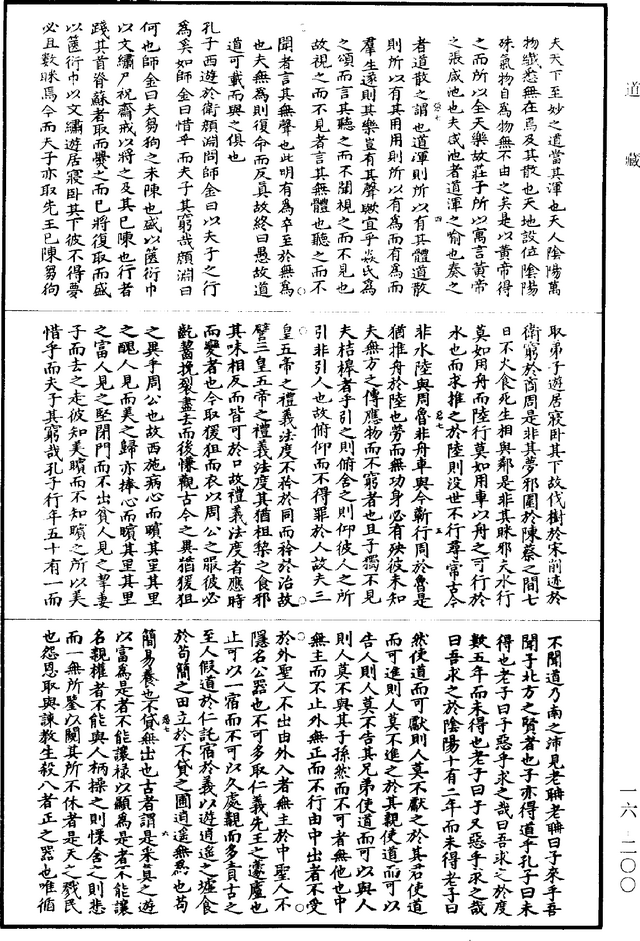 道藏
夫天下至妙之道當其渾也天人陰陽萬
物蔑悉無在焉及其散也天地設位陰陽
殊氣物自爲物無不由之矣是以黄帝得
之而所以全天樂故莊子所以寓言黄帝
之張咸池也夫咸池者道渾之喻也奏之
者道散之謂也道渾則所以有其體道散
則所以有其用用則所以有爲而有爲而
羣生遂則其樂豈有其聲歟宜乎焱氏爲
之頌而言其聽之而不聞視之而不見也
故視之而不見者言其無體也聽之而不
聞者言其無聲也此明有爲卒至於無爲
也夫無爲則復命而反真故終曰愚故道
道可載而與之俱也
孔子西遊於衛顔淵問師金曰以夫子之行
爲奚如師金曰惜乎而夫子其窮哉顔淵曰
何也師金曰夫芻狗之未陳也盛以篋衍巾
以文繡尸祝齋戒以將之及其已陳也行者
踐其首脊蘇者取而爨之而已將復取而盛
以篋衍巾以文繡遊居寢卧其下彼不得夢
必且數眯焉今而夫子亦取先王已陳芻狗
取弟子遊居寢卧其下故伐樹於宋削迹於
衛窮於商周是非其夢邪圍於陳蔡之間七
日不火食死生相與鄰是非其眯邪夫水行
莫如用舟而陸行莫如用車以舟之可行於
水也而求推之於陸則没世不行尋常古今
非水陸與周魯非舟車與今蘄行周於魯是
猶推舟於陸也勞而無功身必有殃彼未知
夫無方之傳應物而不窮者也且子獨不見
夫桔槔者乎引之則俯舍之則仰彼人之所
引非引人也故俯仰而不得罪於人故夫三
皇五帝之禮義法度不矜於同而矜於治故
譬三皇五帝之禮義法度其猶柤棃之食邪
其味相反而皆可於口故禮義法度者應時
而變者也今取猨狙而衣以周公之服彼必
齕齧挽裂盡去而後慊觀古今之異猶猨狙
之異乎周公也故西施病心而矉其里其里
之醜人見而美之歸亦捧心而矉其里其里
之富人見之堅閉門而不出貧人見之挈妻
子而去之走彼知美矉而不知矉之所以美
惜乎而夫子其窮哉孔子行年五十有一而
不聞道乃南之沛見老聃老聃曰子來乎吾
聞子北方之賢者也子亦得道乎孔子曰未
得也老子曰子惡乎求之哉曰吾求之於度
數五年而未得也老子曰子又惡乎求之哉
曰吾求之於陰陽十有二年而未得老子曰
然使道而可獻則人莫不獻之於其君使道
而可進則人莫不進之於其親使道而可以
告人則人莫不告其兄弟使道而可以與人
則人莫不與其子孫然而不可者無他也中
無主而不止外無正而不行由中出者不受
於外聖人不出由外入者無主於中聖人不
隱名公器也不可多取仁義先王之蘧廬也
止可以一宿而不可以久處覯而多責古之
至人假道於仁託宿於義以遊逍遥之墟食
於苟簡之田立於不貸之圃逍遥無爲也苟
簡易養也不貸無出也古者謂是采真之遊
以富爲是者不能讓禄以顯爲是者不能讓
名親權者不能與人柄操之則慄舍之則悲
而一無所鑒以闚其所不休者是天之戮民
也怨恩取與諫教生殺八者正之器也唯循
一六·二〇〇